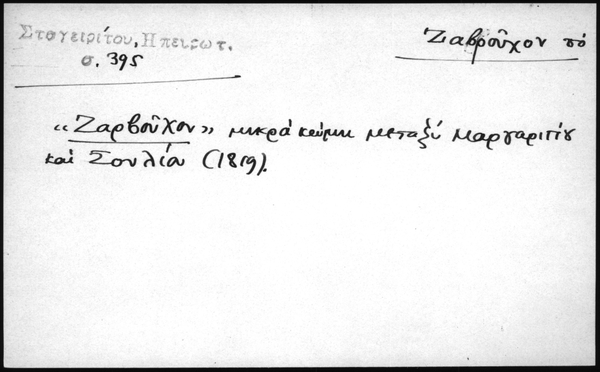 Σταγειρίτου, Ηπειρωτ.
σ. 395
Ζαβροῦχον τό
«Ζαρβοῦχον» μικρά κώμη μεταξύ Μαργαριτίου
καί Σουλίου (1819).